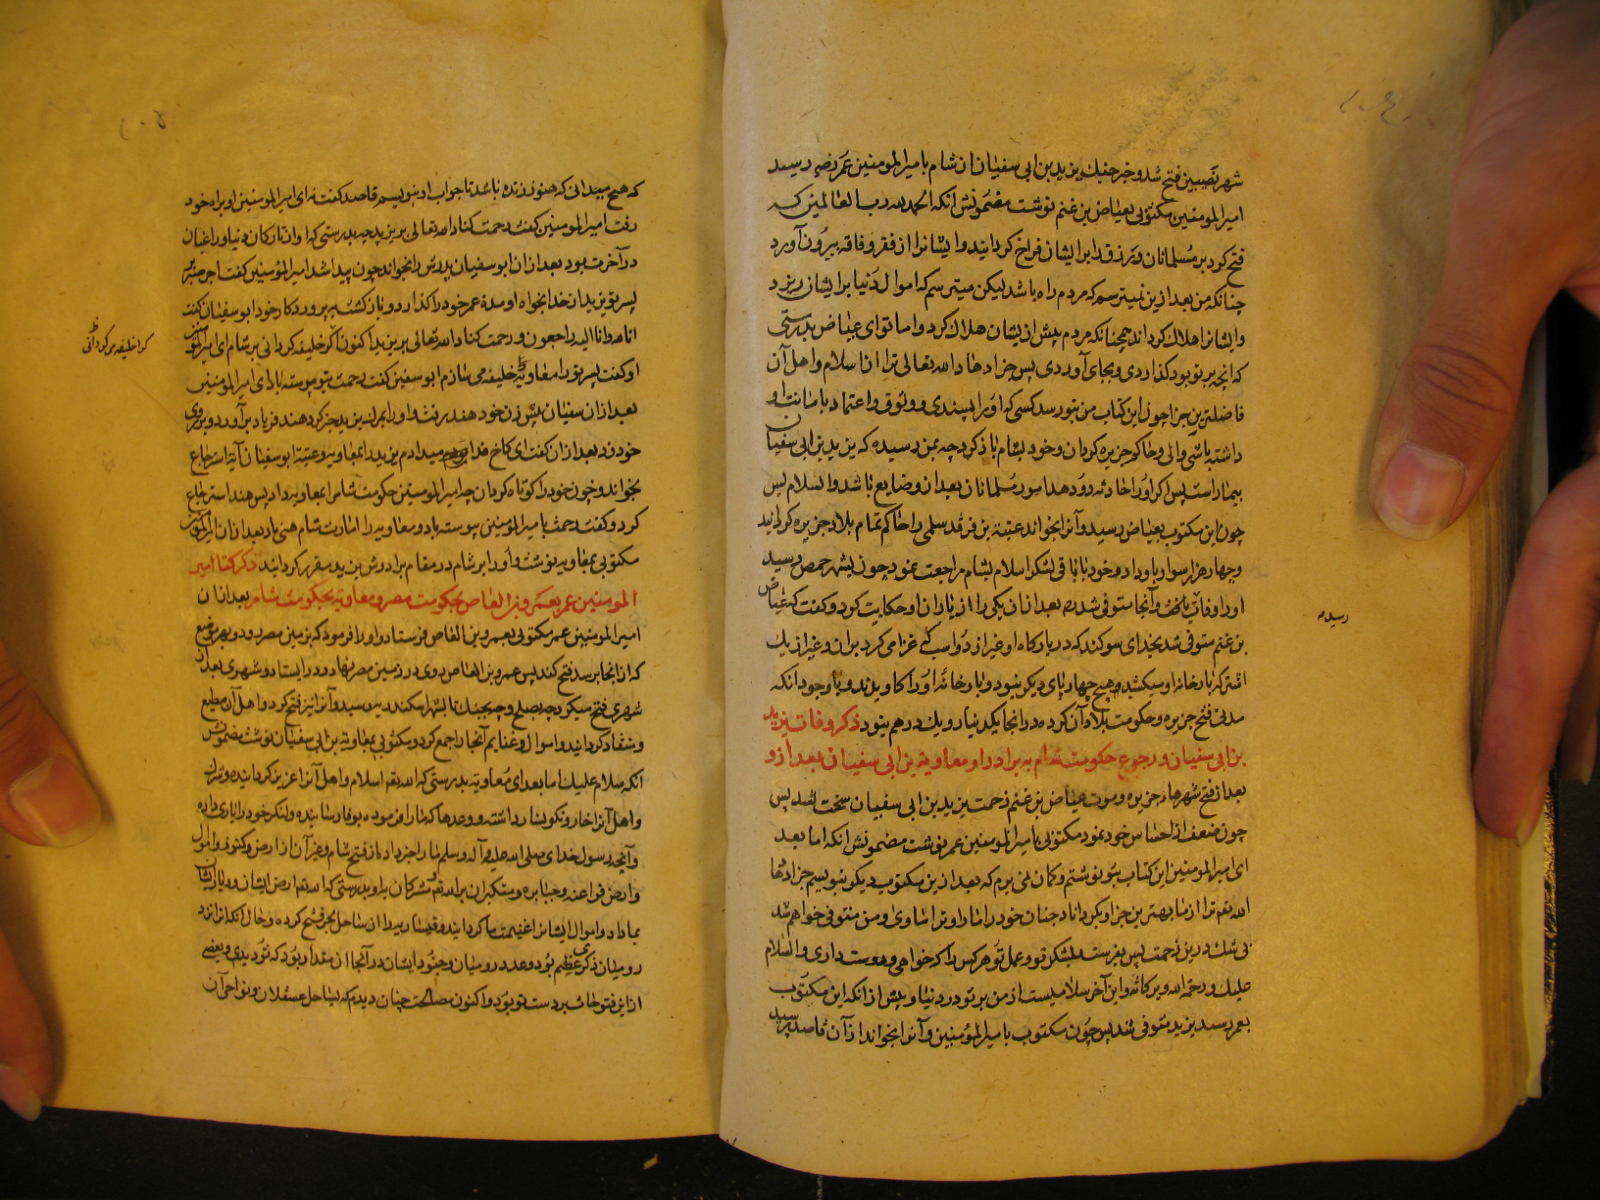 شهر نصیبین فتح شد و خبر جنك یزید بن ابی سفیان از شام بامیرالمومنین عمر رضه رسید
امیرالمومنین مکتوبی بعیاض بن غنم نوشت مضمونش انکه الحمد لله رب العالمین که
فتح کرد بر مسلمانان و رزق را بر ایشان فراخ کردانید و ایشانرا از فقر و فاقه بیرون آورد
چنانکه من بعد ازین نمیترسم که مردم راه باشد لیکن میترسم که اموال دنیا بر ایشان ریزد
و ایشانرا هلاك کرداند همچنانکه مردم پیش از یشان هلاك کرد و اما تو ای عیاض بدرستی
که انچه بر تو بود کذاردی و بجای آوردی پس جزا دهاد الله تعالی ترا از اسلام و اهل آن
فاضلترین جزا چون این کتاب من بتو رسد کسی که او را پسندی و وثوق و اعتماد بامانت او
داشته باشی والی و حاکم جزیره کردان و خود بشام باز کرد چه بمن رسیده که یزید بن ابی سفیان
بیمار است پس اکر او را حادثه رو دهد امور مسلمانان بعد از و ضایع باشد والسلام پس
چون این مکتوب بعیاض رسید و آنرا بخواند عتبة بن فرقد سلمی را حاکم تمام بلاد جزیره کردانید
و چهار هزار سوار باو داد و خود با باقی لشکر اسلام بشام مراجعت نمود چون بشهر حمص رسید
او را وفات یافت و آنجا متوفی شد بعد از ان یکی را از یاران او حکایت کرد و کفت که عیاض
بن غنم متوفی شد بخدای سوکند که در بارکاه او غیر از دو اسب که غزا می کرد بران و غیر از یك
اشتر که بارخانه او میکشید هیچ چهارپای دیکر نبود و بارخانه او را کاوید وند و با وجود انکه
مدتی فتح جزیره و حکومت بلاد آن کرده در انجا یك دینار و یك درهم نبود ذکر وفات یزید
بن ابی سفیان و رجوع حکومت شام به برادر او معاویة بن ابی سفیان بعد از و
بعد از فتح شهرهاء جزیره و موت عیاض بن غنم زحمت یزید بن ابی سفیان سخت شد پس
چون ضعف از احساس خود نمود مکتوبی بامیرالمومنین عمر نوشت مضمونش انکه اما بعد
ای امیرالمومنین این کتاب بتو نوشتم و کمان نمی برم که بعد ازین مکتوب دیکر بتو نویسم جزا دهاد
الله تعم ترا از ما بهترین جزا و بکرداناد جنان خود را ماوا و ترا ماوی و من متوفی خواهم شد
بی شك درین زحمت پس بفرست بلشکر تو و عمل تو هر کس را که خواهی و دوست داری والسلام
علیك و رحمة الله و برکاته و این آخر سلامیست از من بر تو در دنیا و پیش از انکه این مکتوب
بعمر رسد یزید متوفی شد پس چون مکتوب بامیرالمؤمنین و آنرا بخواند از آن قاصد پرسید
رسید
که هیچ میدانی که هنوز زنده باشد تا جواب او بنویسم قاصد کفت نه ای امیرالمومنین او براه خود
رفت امیرالمومنین کفت رحمت کناد الله تعالی بر یزید چه بدرستی که او از تارکان دنیا و راغبان
در آخرت بود بعد از ان ابو سفیان پدرش را بخواند چون پیدا شد امیرالمؤمنین کفت اجر صبر بر
پسر تو یزید از خدا بخواه او مدة عمر خود را کذارد و باز کشت بپروردکار خود ابو سفیان کفت
انا لله و انا الیه راجعون و رحمت کناد الله تعالی بر یزید اکنون کرا خلیفه کردانی بر شام ای امیرالمؤمنین
کرا خلیفه می کردانی
او کفت پسر تو را معاویه خلیفه می سازم ابو سفین کفت رحمت بتو پیوسته باد ای امیرالمومنین
بعد از ان سفیان پیش زن خود هند رفت و او را بمرك یزید خبر کرد هند فریاد بر آورد و بر روی
خود زد بعد از ان کفت ای کاخ فدا میدادم یزید را بمعاویه و عتبة ابو سفیان آیة استرجاع
بخواند و چون خود را کوتاه کردان چه امیرالمومنین حکومت شام را بمعاویه داد پس هند استرجاع
کرد و کفت رحمت بامیرالمومنین پیوسته باد و معاویه را امارت شام هنی باد بعد از ان امیرالمؤمنین
مکتوبی بمعاویه نوشت و او را بر شام در مقام برادرش یزید مقرر کردانید ذکر کتاب امیر
المومنین عمر بعمرو بن العاص بحکومت مصر و معاویه بحکومت شام بعد از ان
امیرالمومنین عمر مکتوبی بعمرو بن العاص فرستاد و او را فرمود که بزمین مصر رود و بهر موضع
که از انجا برسد فتح کند پس عمرو بن العاص روی در زمین مصر نهاد و در ایستاد و شهری بعد از
شهری فتح میکرد چه بصلح و چه بجنك تا بشهر اسکندریه رسید و آنرا نیز فتح کرد و اهل آن مطیع
و منقاد کردانید و اموال و غنایم آنجا را جمع کرد و مکتوبی بمعاویة بن ابی سفیان نوشت مضمونش
انکه سلام علیك اما بعد ای معاویه بدرستی که الله تعم اسلام و اهل آنرا عزیز کردانیده و شرك
و اهل آنرا خار و نکونسار داشته و وعدها که ما را فرموده بوفا رسانیده و لشکر خود را یاری داده
و آنچه رسول خدای صلی الله علیه و آله و سلم ما را خبر داد از فتح شام و غیر آن از ارض و کنوز و اموال
و ارض فراعنه و جبابره و متکبران بر الله تعم و مشرکان باو بدرستی که الله تعم ارض ایشان و دیار ایشان
بما داد و اموال ایشانرا غنیمت ما کردانید و قیساریه را از ساحل بحر فتح کرده و حال انکه انرا نزد
رومیان ذکری عظیم بود و عدد رومیان و جنود ایشان در آنجا آن مقدار بود که تو دیدی و بعضی
از این فتوحات بر دست تو بود و اکنون مصلحت چنان دیدم که بساحل عسقلان و نواحی آن